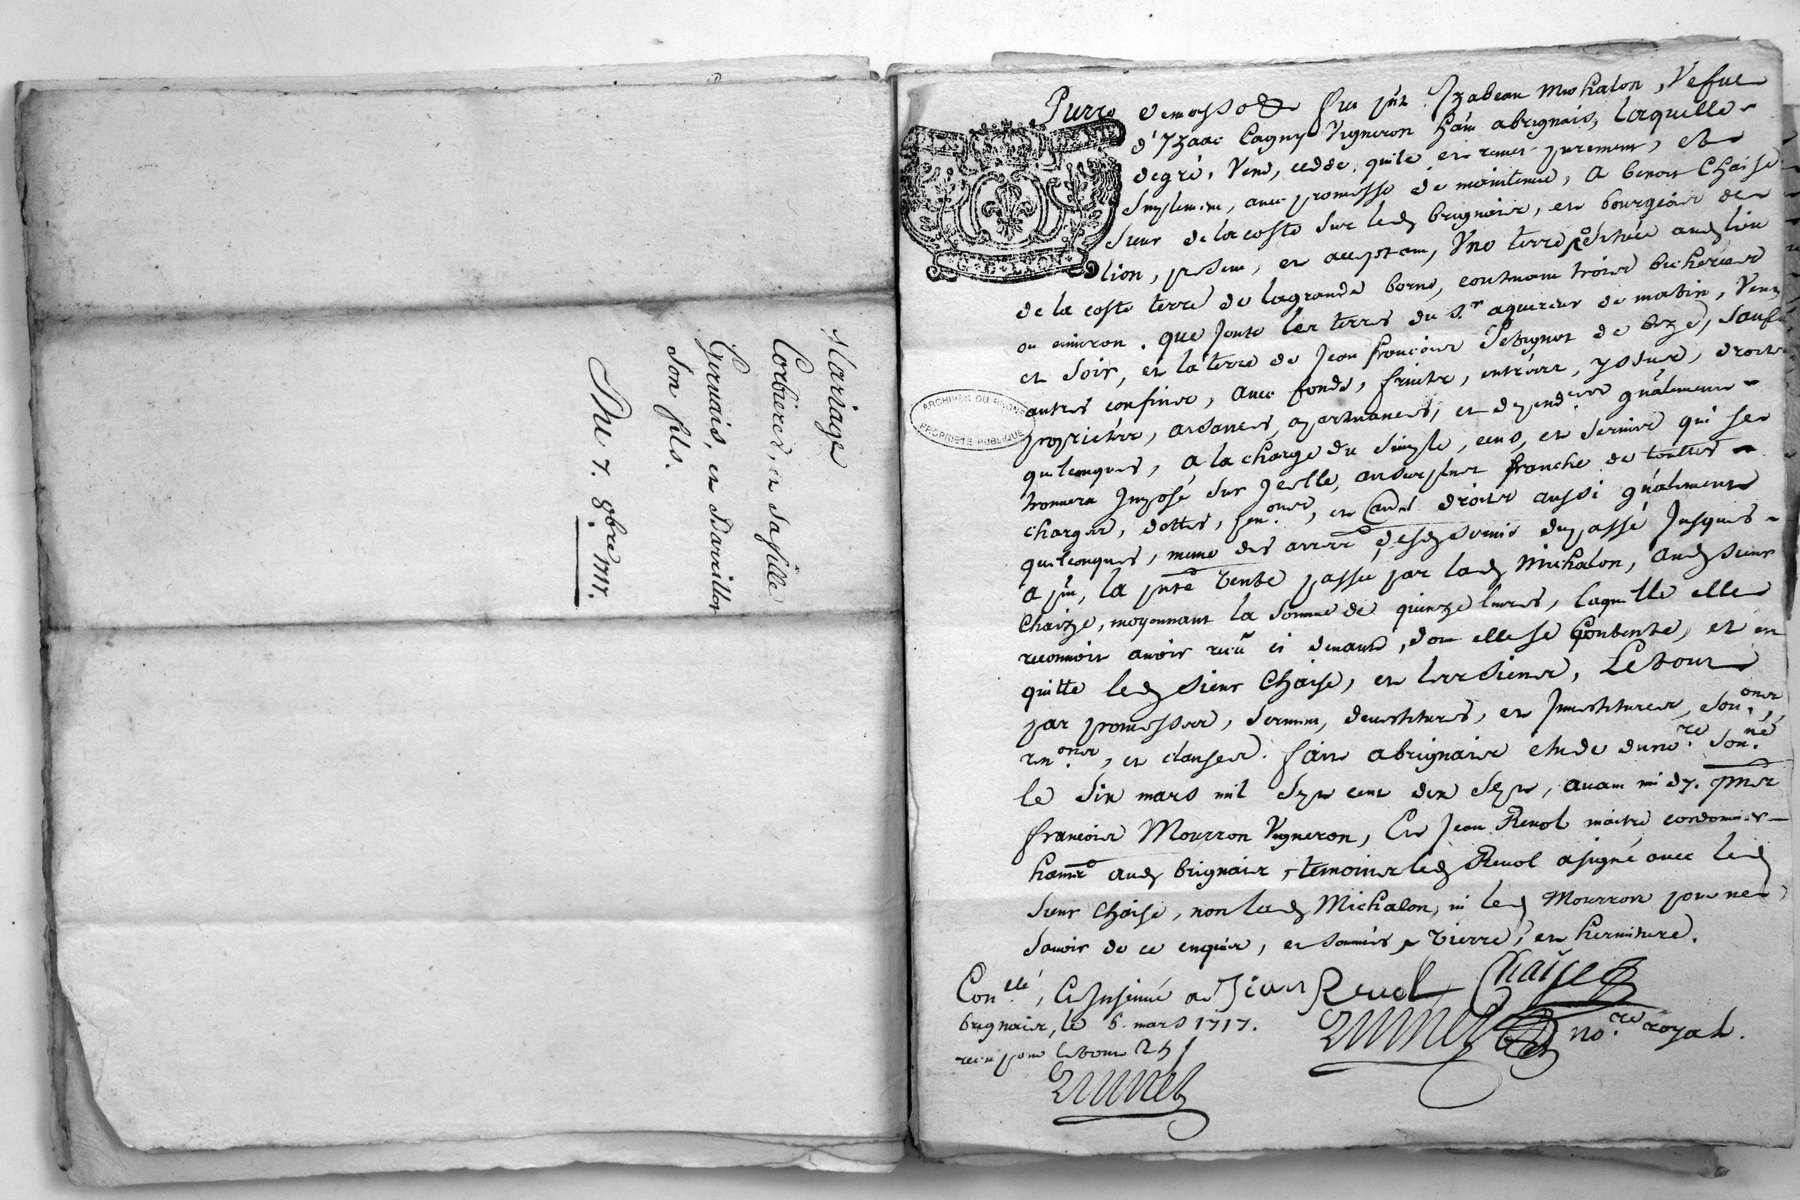 Mariage
Corbieres, et sa fille
Gervais, et Barrillot
son fils.
Du 7. 8bre 1717.
Pierre
fut pnt Izabeau Michalon, Vefue
d'Yzaac Cagny Vigneron hant a brignais, laquelle
de gré, Vend, cedde, quite et remet purement, et
simplement, avec promesse de maintenue, A benoit Chaise
sieur de la coste sur led brignais, et bourgeois de
lion, psent, et acceptant, Une terre, situèe aud lieu
de la coste terre de la grande borne, contenant trois bicherées
ou environ. que Jouste les terres du Sr. aquereur de matin, Vent,
et soir, et la terre de Jean francois Petignot de bize, sauf
autres confins, Avec fonds, fruits, entrées, yssues, droits
proprietés, aisances, apartenances, et dependces gñalement
quelconques, A la charge du simple, cens, et servis qui se
trouvera Imposé sur Jcelle, au surplus franche de touttes
charges, dettes, pen.ons, et Cauts droits aussi gñalement
quelconques, meme des arrer. desd servis du passé Jusques
a pnt, la pnte Vente passée par lad Michalon, aud sieur
Chaize, moyennant la somme de quinze livres, laquelle elle
reconnoit avoir reçu ci devant, dont elle se Contente, et en
quitte led sieur Chaise, et les siens, Le tout
par promesses, serment, devestitures, et Jnvestitures,
ren.ons, et clauses. fait a brignais etude du nore. son.né
le six mars mil sept cent dix sept, avant midy. pnts
francois Mourron Vigneron, Et Jean Revol maitre cordonnier
hants aud brignais, temoins led Revol a signé avec led
sieur Chaise, non lad Michalon, ni led Mourron pour ne
savoir de ce enquis, et sommés
Con.llé, Et Insinué a
brignais, le 6. mars 1717.
reçu pour le tout
Jean Revol
Chaise
Brunet
no.re royal.
Brunet
G. D. LYON
ARCHIVES DU RHONE
PROPRIÉTÉ PUBLIQUE